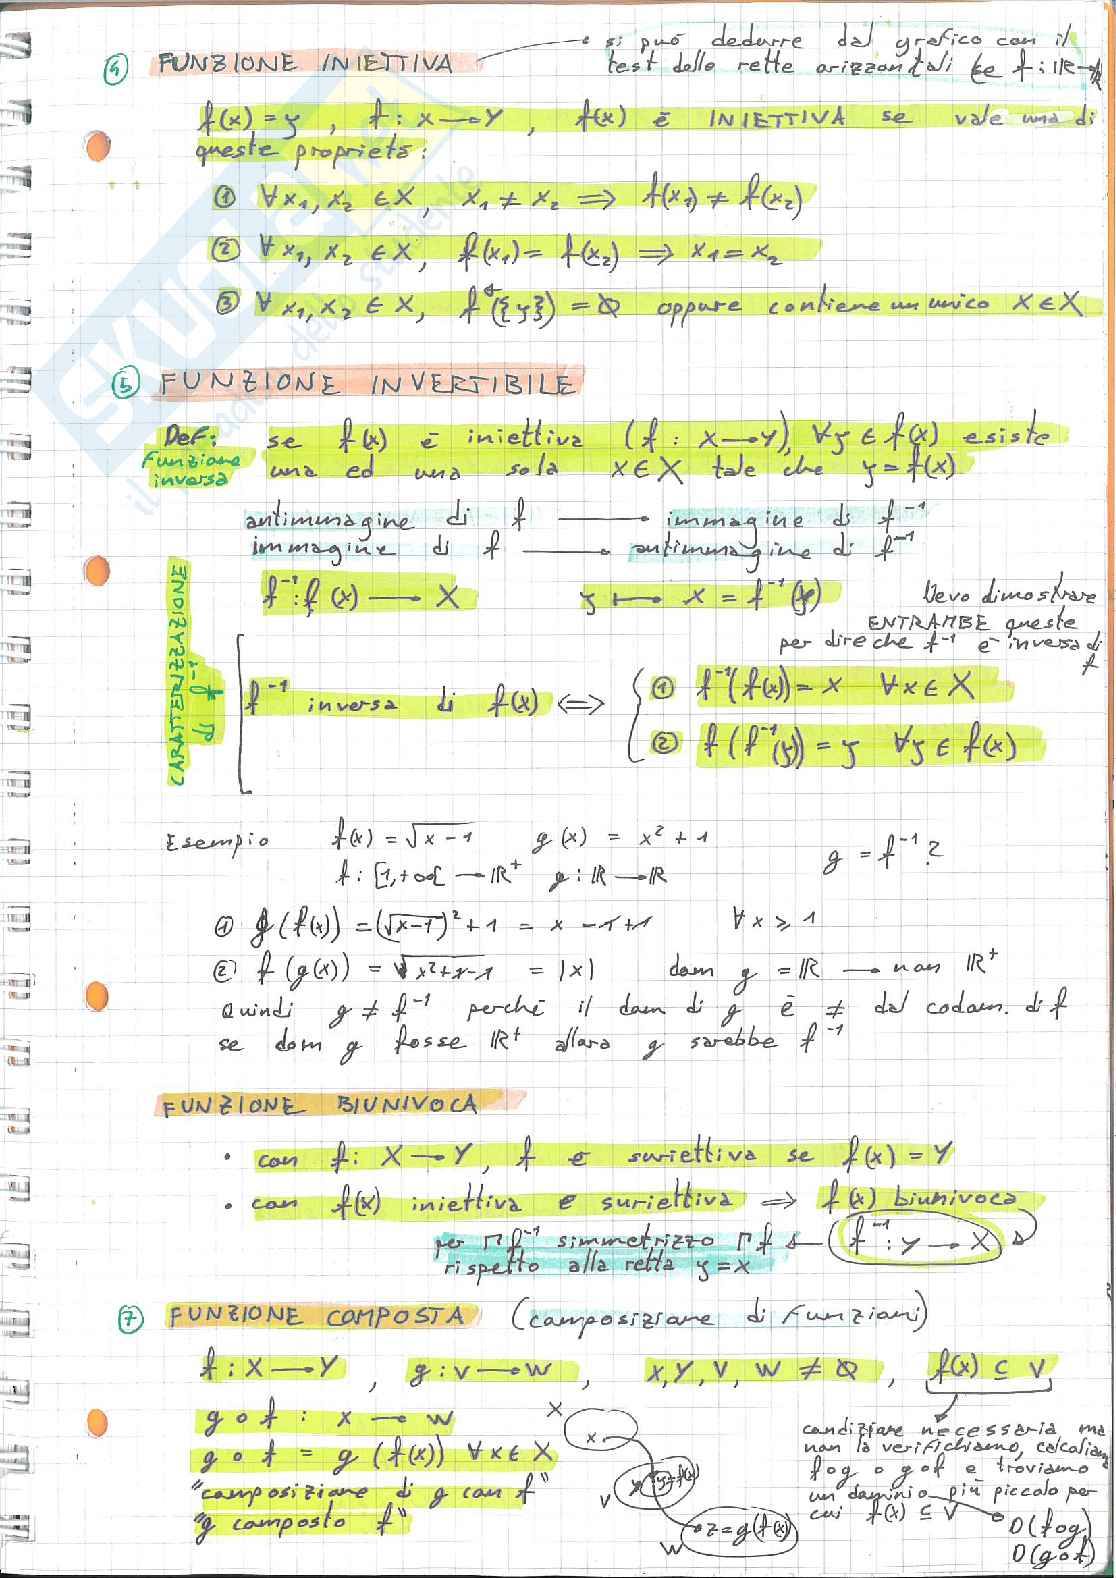 ④ FUNZIONE INIETTIVA
• si può dedurre dal grafico con il
test delle rette orizzontali (se f : ℝ→ℝ
f(x) = y , f : X → Y , f(x) è INIETTIVA se vale una di
queste proprietà:
① ∀ x₁, x₂ ∈ X, x₁ ≠ x₂ ⟹ f(x₁) ≠ f(x₂)
② ∀ x₁, x₂ ∈ X, f(x₁) = f(x₂) ⟹ x₁ = x₂
③ ∀ x₁, x₂ ∈ X, f⃖({y}) = Ø oppure contiene un unico x ∈ X
⑤ FUNZIONE INVERTIBILE
Def: se f(x) è iniettiva (f : X → Y), ∀y ∈ f(x) esiste
Funzione inversa
una ed una sola x ∈ X tale che y = f(x)
antimmagine di f → immagine di f⁻¹
immagine di f → antimmagine di f⁻¹
f⁻¹ : f(x) → X y ↦ x = f⁻¹(y)
Devo dimostrare
ENTRAMBE queste
per dire che f⁻¹ è inversa di
f
CARATTERIZZAZIONE
DI f⁻¹
f⁻¹ inversa di f(x) ⟺
① f⁻¹(f(x)) = x ∀x ∈ X
② f(f⁻¹(y)) = y ∀y ∈ f(x)
Esempio f(x) = √x-1 g(x) = x² + 1
g = f⁻¹ ?
f : [1,+∞[ → ℝ⁺ g : ℝ → ℝ
① g(f(x)) = (√x-1)² + 1 = x - 1 + 1 ∀ x ≥ 1
② f(g(x)) = √x²+1-1 = |x| dom g = ℝ → non ℝ⁺
Quindi g ≠ f⁻¹ perché il dom di g è ≠ dal codom. di f
se dom g fosse ℝ⁺ allora g sarebbe f⁻¹
FUNZIONE BIUNIVOCA
• con f : X → Y, f è suriettiva se f(x) = Y
• con f(x) iniettiva e suriettiva ⟹ f(x) biunivoca
per Γf⁻¹ simmetrizzo Γf ← (f⁻¹ : y → X)
rispetto alla retta y = x
⑦ FUNZIONE COMPOSTA (composizione di Funzioni)
f : X → Y , g : V → W , X, Y, V, W ≠ Ø , f(x) ⊆ V
g o f : X → W
g o f = g (f(x)) ∀x ∈ X
"composizione di g con f"
"g composto f"
X
x
V
y
y=f(x)
W
z = g(f(x))
condizione necessaria, ma
non la verifichiamo, calcoliamo
fog o gof e troviamo
un dominio più piccolo per
cui f(x) ⊆ V
D(fog)
D(gof)
SKUOLA.net
il paradiso dello studente